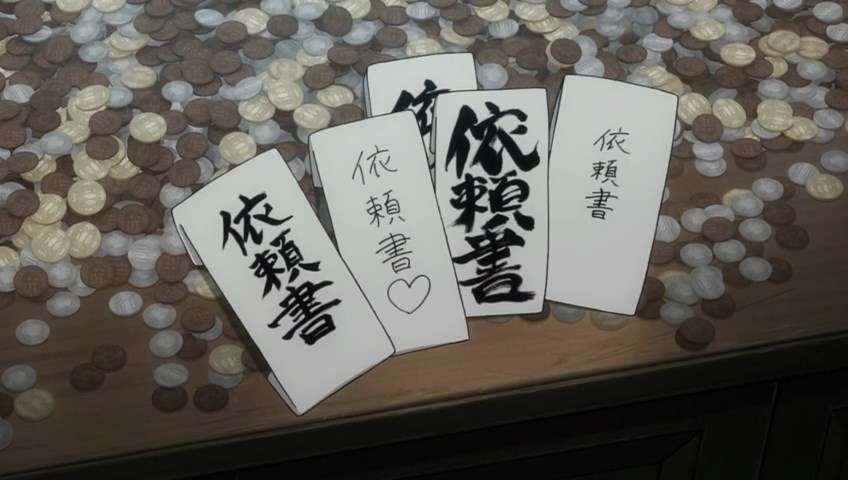 依頼書
依頼書♡
依
依頼書
依頼書